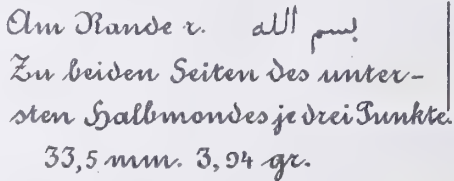 Am Rande r. بسم الله
Zu beiden Seiten des unter-
sten Halbmondes je drei Punkte.
33,5 mm. 3,94 gr.